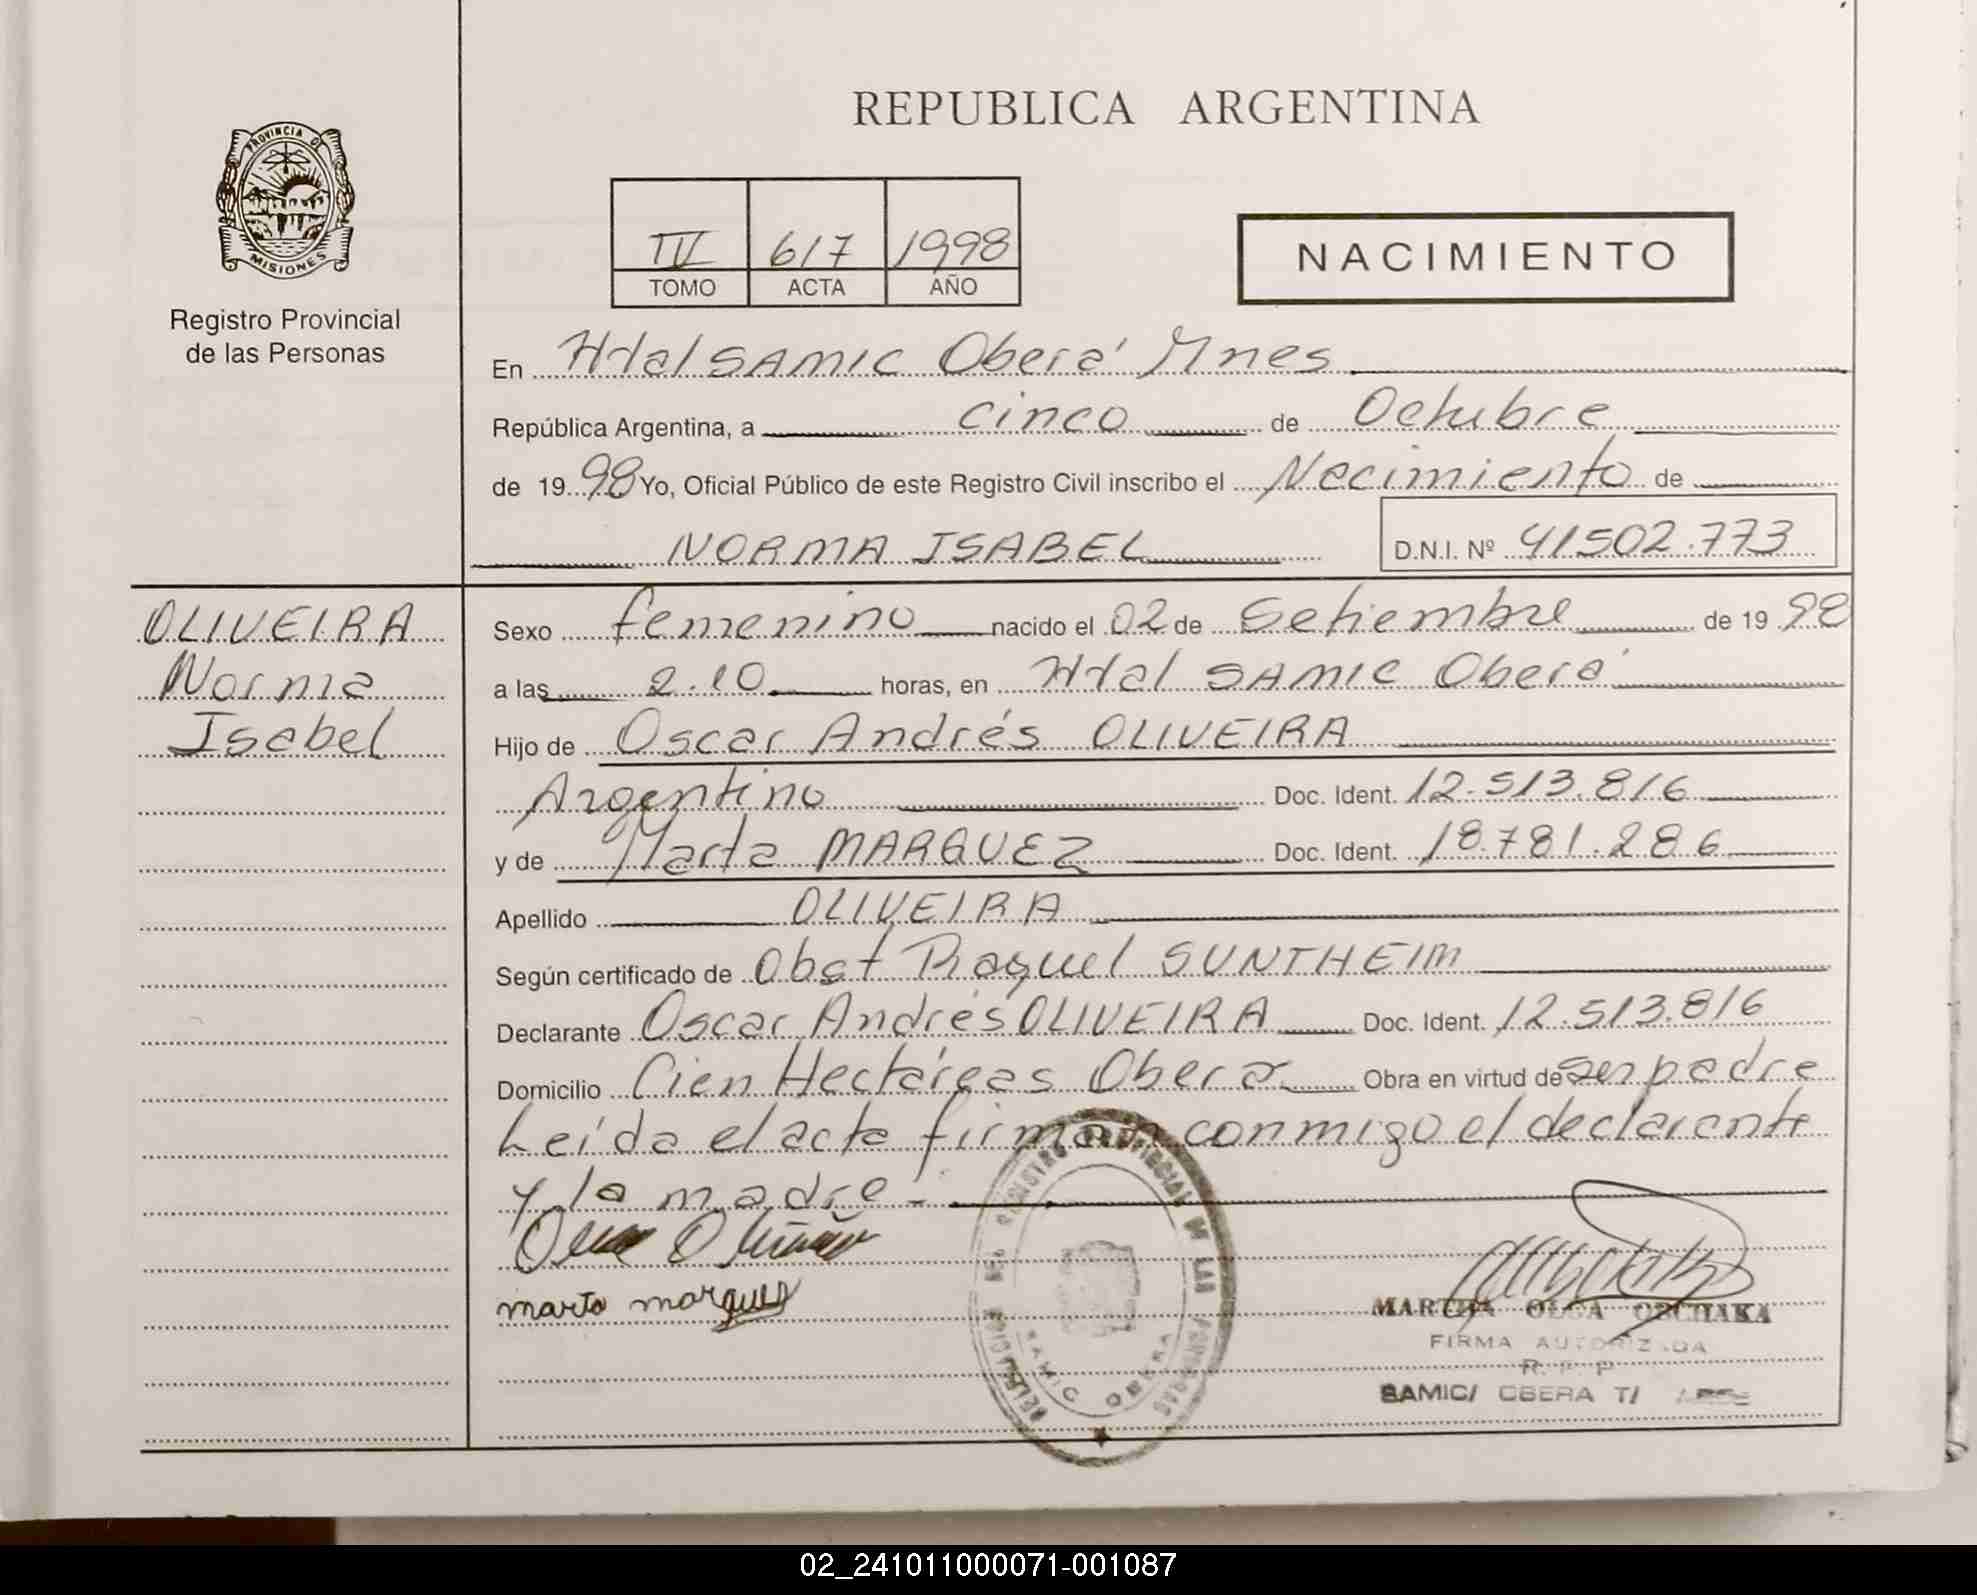 REPUBLICA ARGENTINA
PROVINCIA DE
MISIONES
Registro Provincial
de las Personas
IV 617 1998
TOMO ACTA AÑO
NACIMIENTO
En Htal SAMIC Oberá Mnes
República Argentina, a cinco de Octubre
de 1998 Yo, Oficial Público de este Registro Civil inscribo el Nacimiento de
NORMA ISABEL D.N.I. Nº 41502.773
OLIVEIRA
Norma
Isabel
Sexo femenino nacido el 02 de Setiembre de 1998
a las 2.10 horas, en Htal SAMIC Oberá
Hijo de Oscar Andrés OLIVEIRA
Argentino Doc. Ident. 12.513.816
y de Marta MARQUEZ Doc. Ident. 18.781.286
Apellido OLIVEIRA
Según certificado de Obst Raquel SUNTHEIM
Declarante Oscar Andrés OLIVEIRA Doc. Ident. 12.513.816
Domicilio Cien Hectáreas Obera Obra en virtud de ser padre
Leída el acta firman conmigo el declarante
y la madre.-
marta marquez
REGISTRO PROVINCIAL DE LAS PERSONAS
SAMIC OBERA
MARTHA OLGA OBCHAKA
FIRMA AUTORIZADA
R. P. P
SAMIC/ OBERA T/
02_241011000071-001087